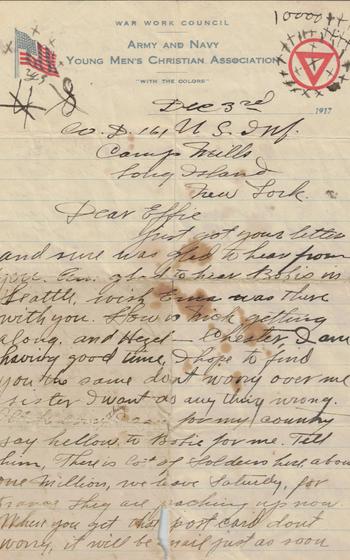 10000++
WAR WORK COUNCIL
ARMY AND NAVY
YOUNG MEN'S CHRISTIAN ASSOCIATION
"WITH THE COLORS"
Dec 3rd 1917
Co. D. 161 U.S. Inf.
Camp Mills
Long Island
New York.
Dear Effie
Just got your letter
and sure was glad to hear from
you. Am glad to hear Bobie in
Seattle, wish was there
with you. How is getting
along. and Hazel – Chester, I am
having good time, I hope to find
you the same dont worry over me
sister I want do any thing wrong.
for my country
say hellow to Bobie for me. Tell
him, There is lots of Solders here, about
one Million, we leave Saturdy, for
France They are packing up now.
When you get that post card dont
worry, it will be mail just as soon